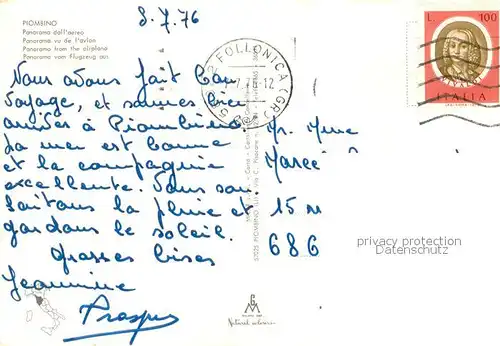 8.7.76
PIOMBINO
Panorama dall'aereo
Panorama vu de l'avion
Panorama from the airplane
Panorama vom Flugzeug aus
Nous avons fait bon
voyage, et sommes bien
arrivés à Piombino.
La mer est bonne
et la compagnie
excellente. Vous sou
haitons la pluie et
gardons le soleil.
Grosses bises
Jeannine
Prosper
FOLLONICA (GR)
L. 100
VIVALDI
ITALIA
Mr. Mme
Marcé
15 N
686
57025 PIOMBINO (LI)
Naturel colore
privacy protection
Datenschutz